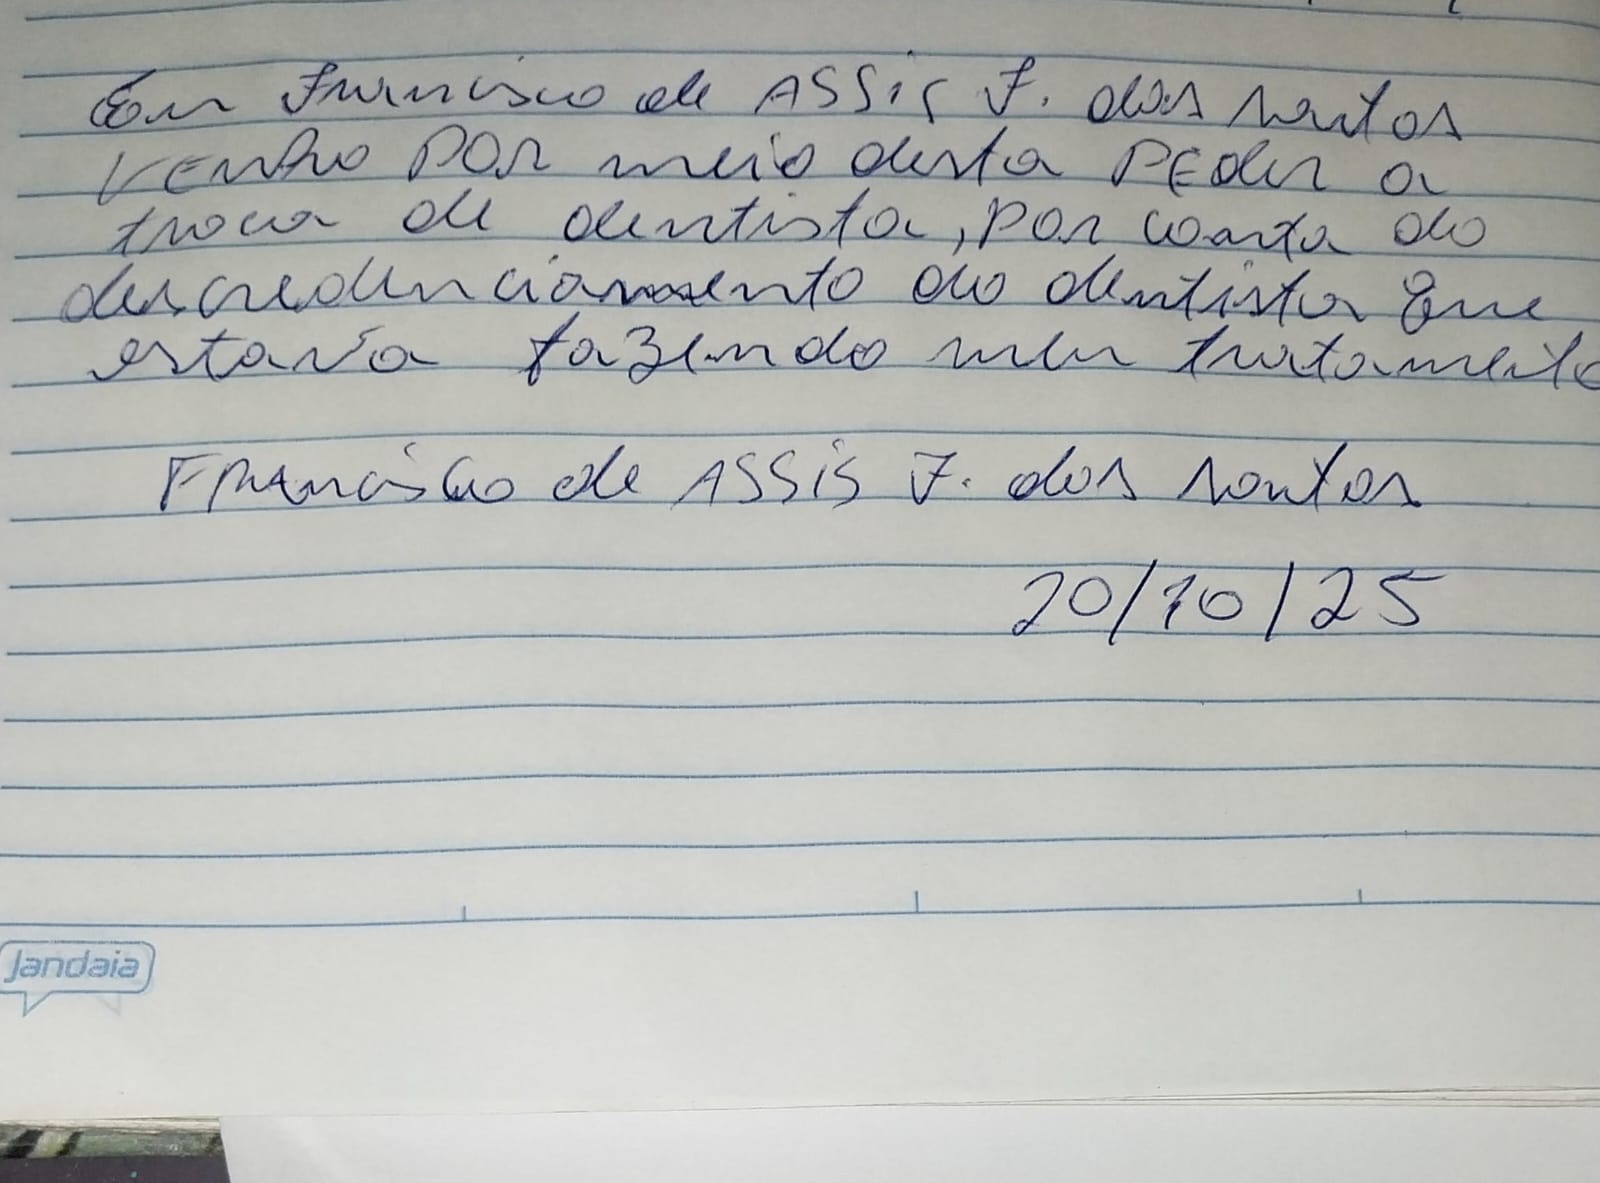 Eu Francisco de ASSis F. dos santos
VENho POR meio desta PEDir a
troca de dentista, por conta do
descredenciamento do dentista que
estava fazendo meu tratamento
FRANCisCo de ASSis F. dos santos
20/10/25
Jandaia